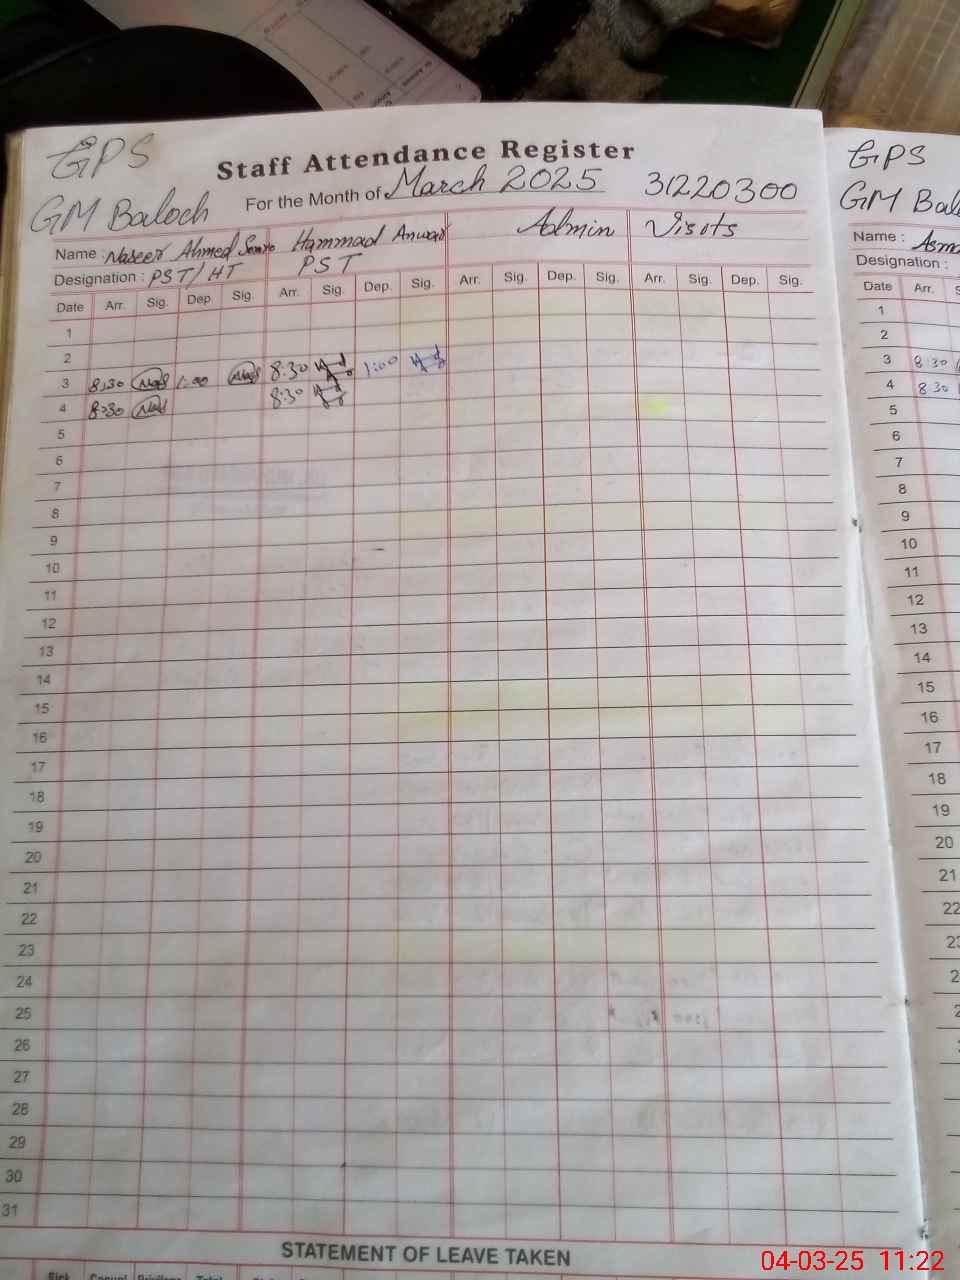 GPS
Staff Attendance Register
GM Baloch For the Month of March 2025 31220300
Name : Naseer Ahmed Hammad Anwar Admin Visits
Designation : PST/HT PST
Date Arr. Sig. Dep. Sig. Arr. Sig. Dep. Sig. Arr. Sig. Dep. Sig. Arr. Sig. Dep. Sig.
1
2
3 8:30 1:00 8:30 1:00
4 8:30 8:30
5
6
7
8
9
10
11
12
13
14
15
16
17
18
19
20
21
22
23
24
25
26
27
28
29
30
31
STATEMENT OF LEAVE TAKEN
GPS
GM
Name :
Designation :
Date Arr.
1
2
3 8:30
4 8:30
5
6
7
8
9
10
11
12
13
14
15
16
17
18
19
20
21
22
04-03-25 11:22